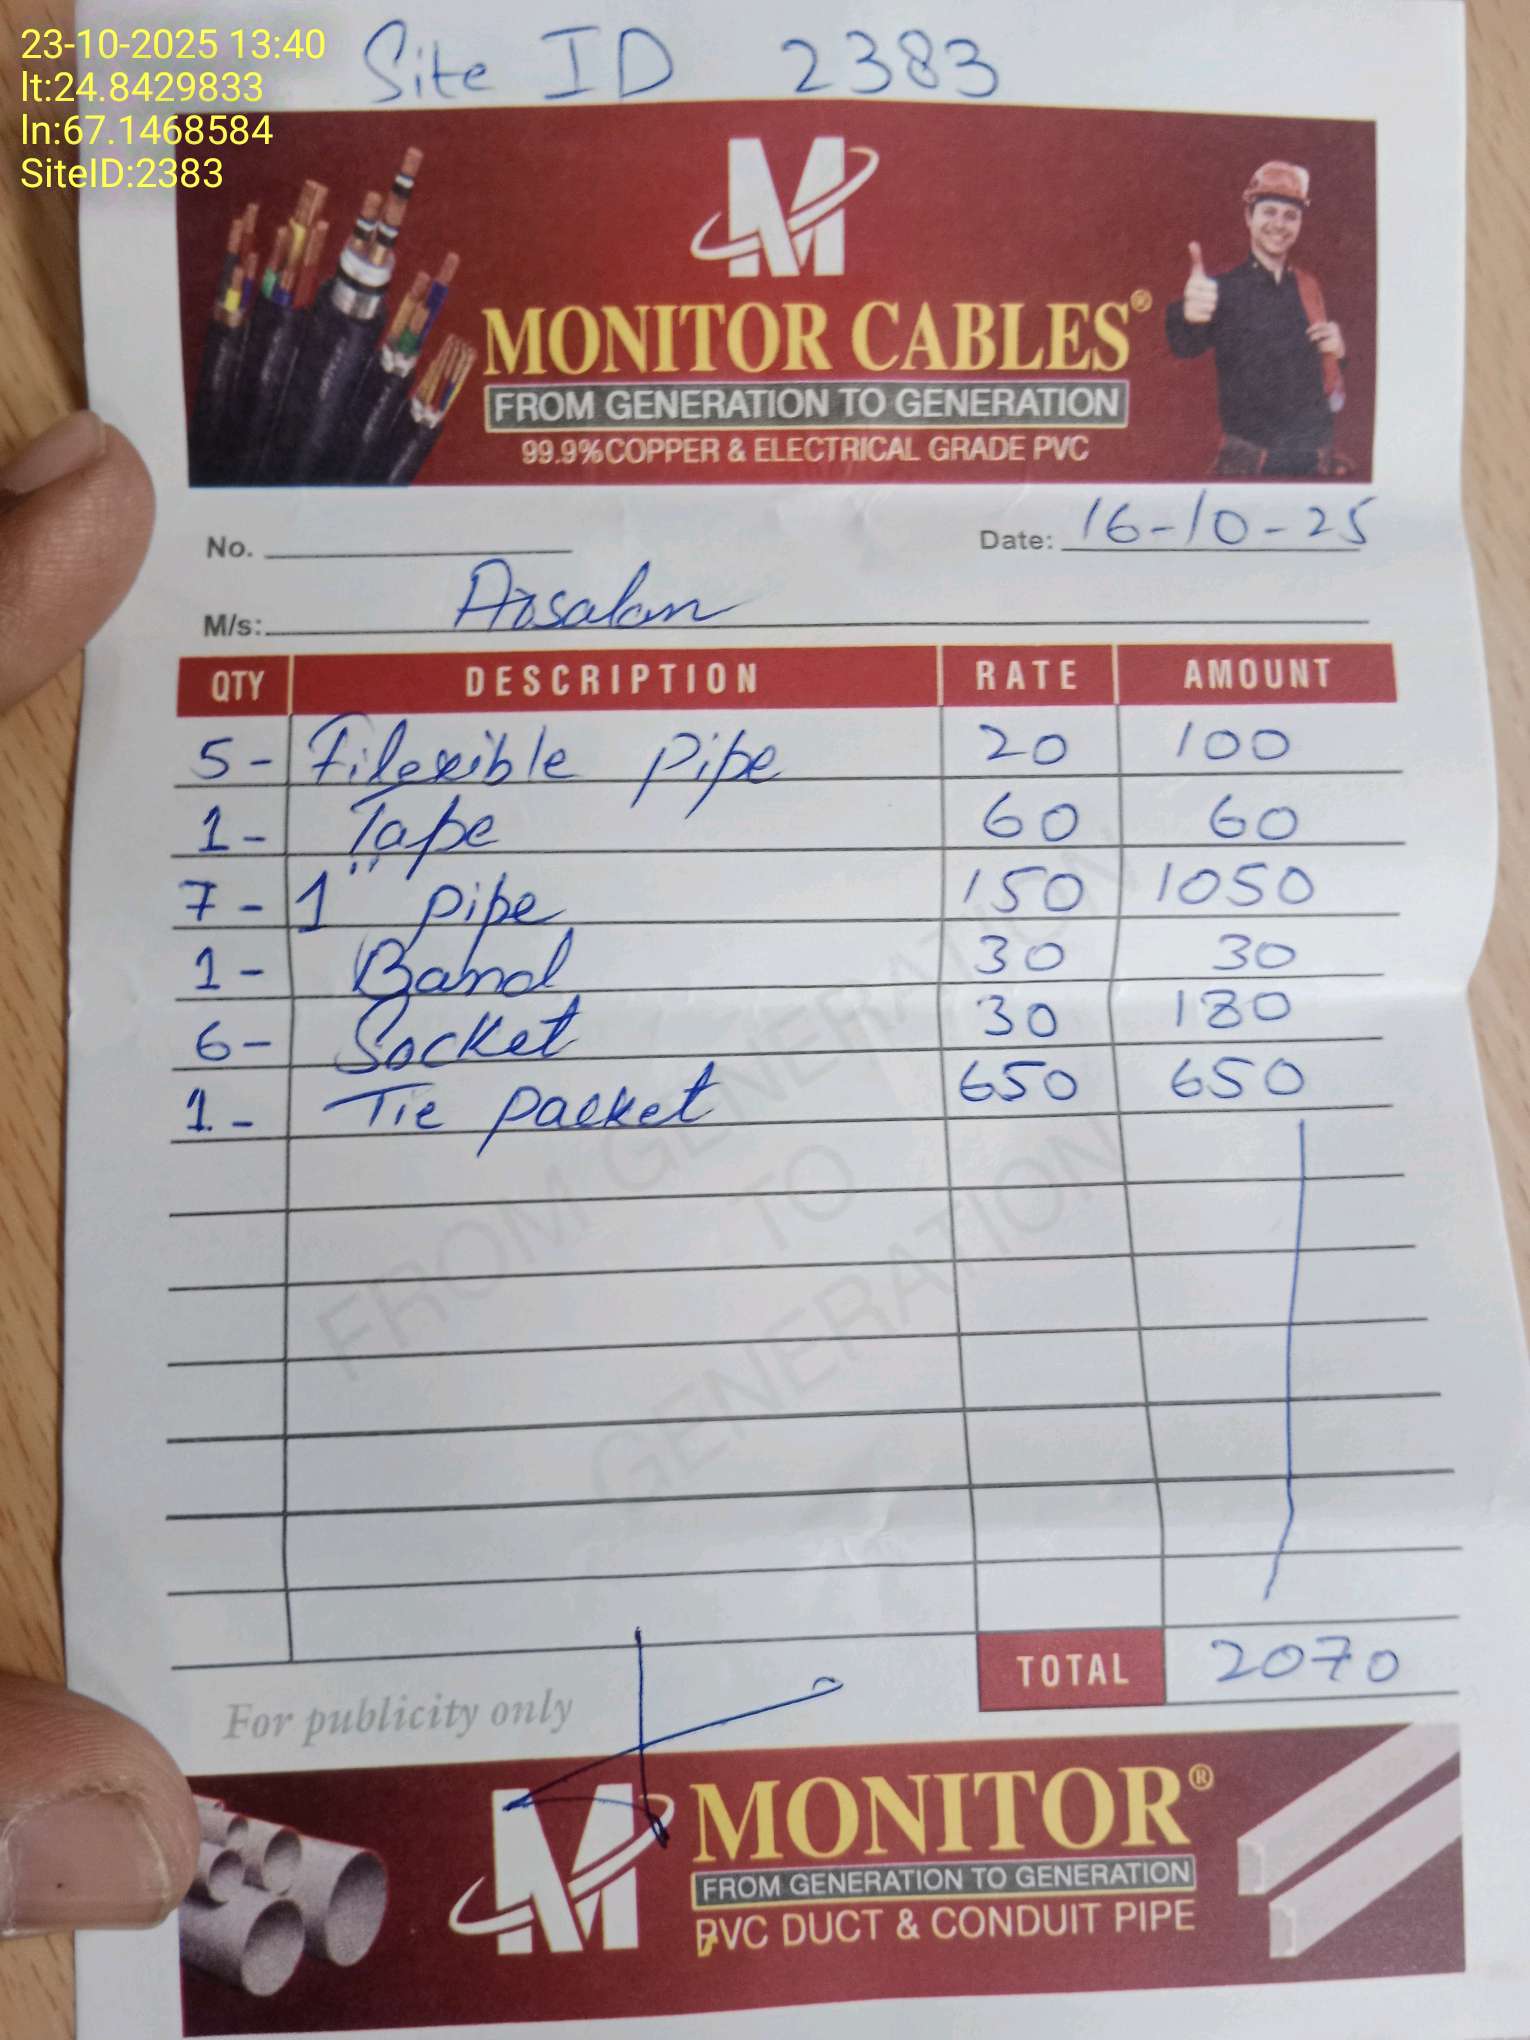 23-10-2025 13:40
lt:24.8429833
ln:67.1468584
SiteID:2383
Site ID 2383
M
MONITOR CABLES®
FROM GENERATION TO GENERATION
99.9% COPPER & ELECTRICAL GRADE PVC
No.
Date: 16-10-25
M/s: Arsalan
QTY DESCRIPTION RATE AMOUNT
5- Filexible Pipe 20 100
1- Tape 60 60
7- 1" pipe 150 1050
1- Band 30 30
6- Socket 30 180
1- Tie packet 650 650
FROM GENERATION
TO
GENERATION
TOTAL 2070
For publicity only
M
MONITOR®
FROM GENERATION TO GENERATION
PVC DUCT & CONDUIT PIPE